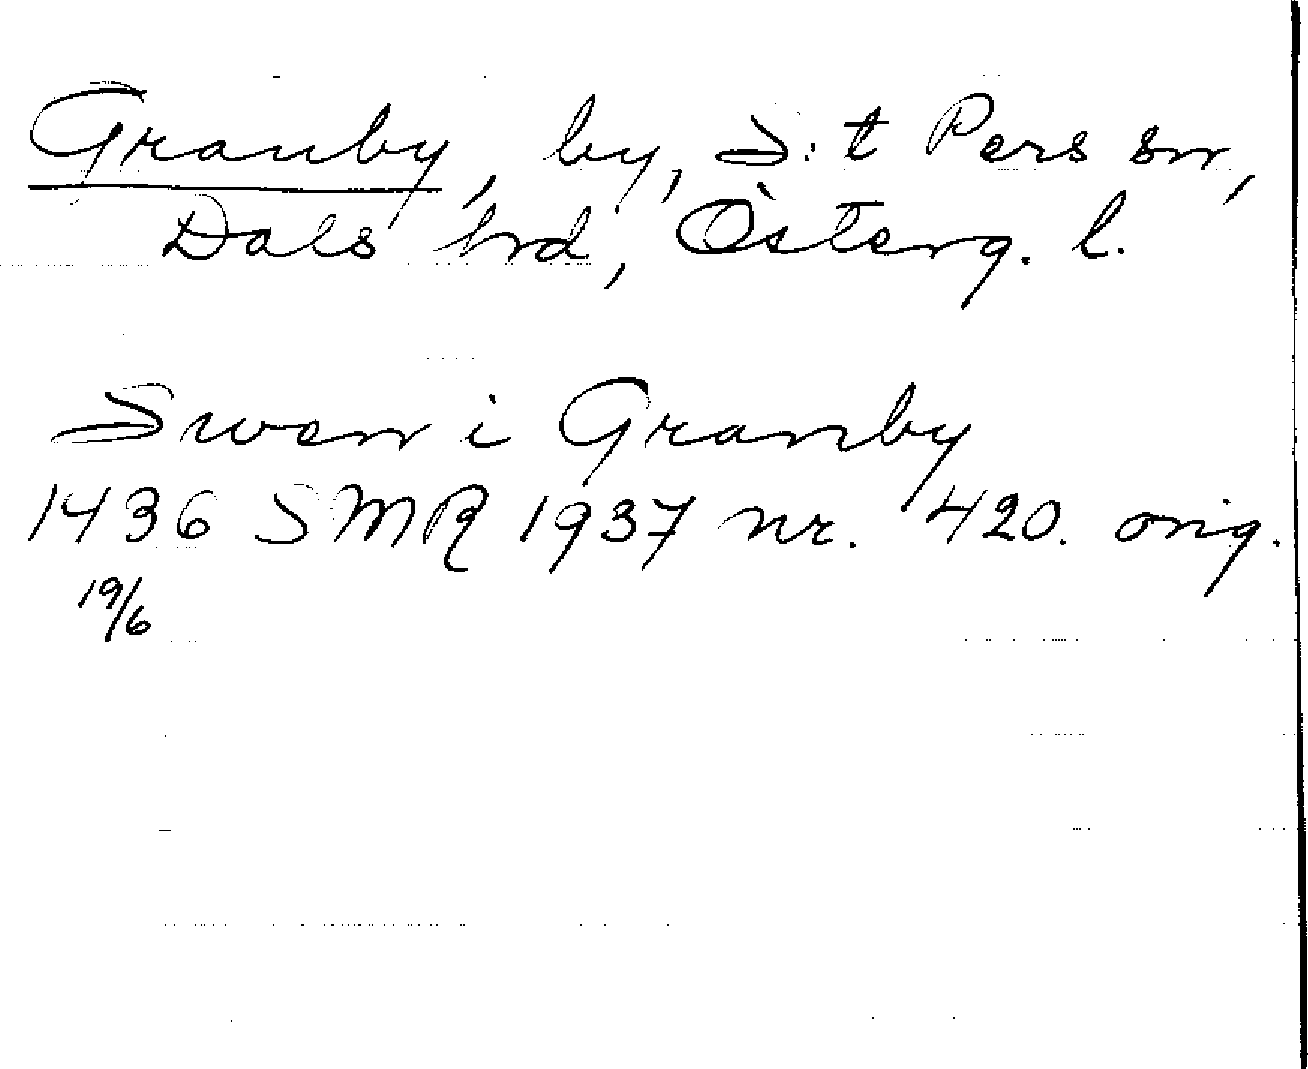 Granby, by, S:t Pers sn,
Dals hrd, Österg. l.
Swen i Granby
1436 SMR 1937 nr. 420. orig.
19/6